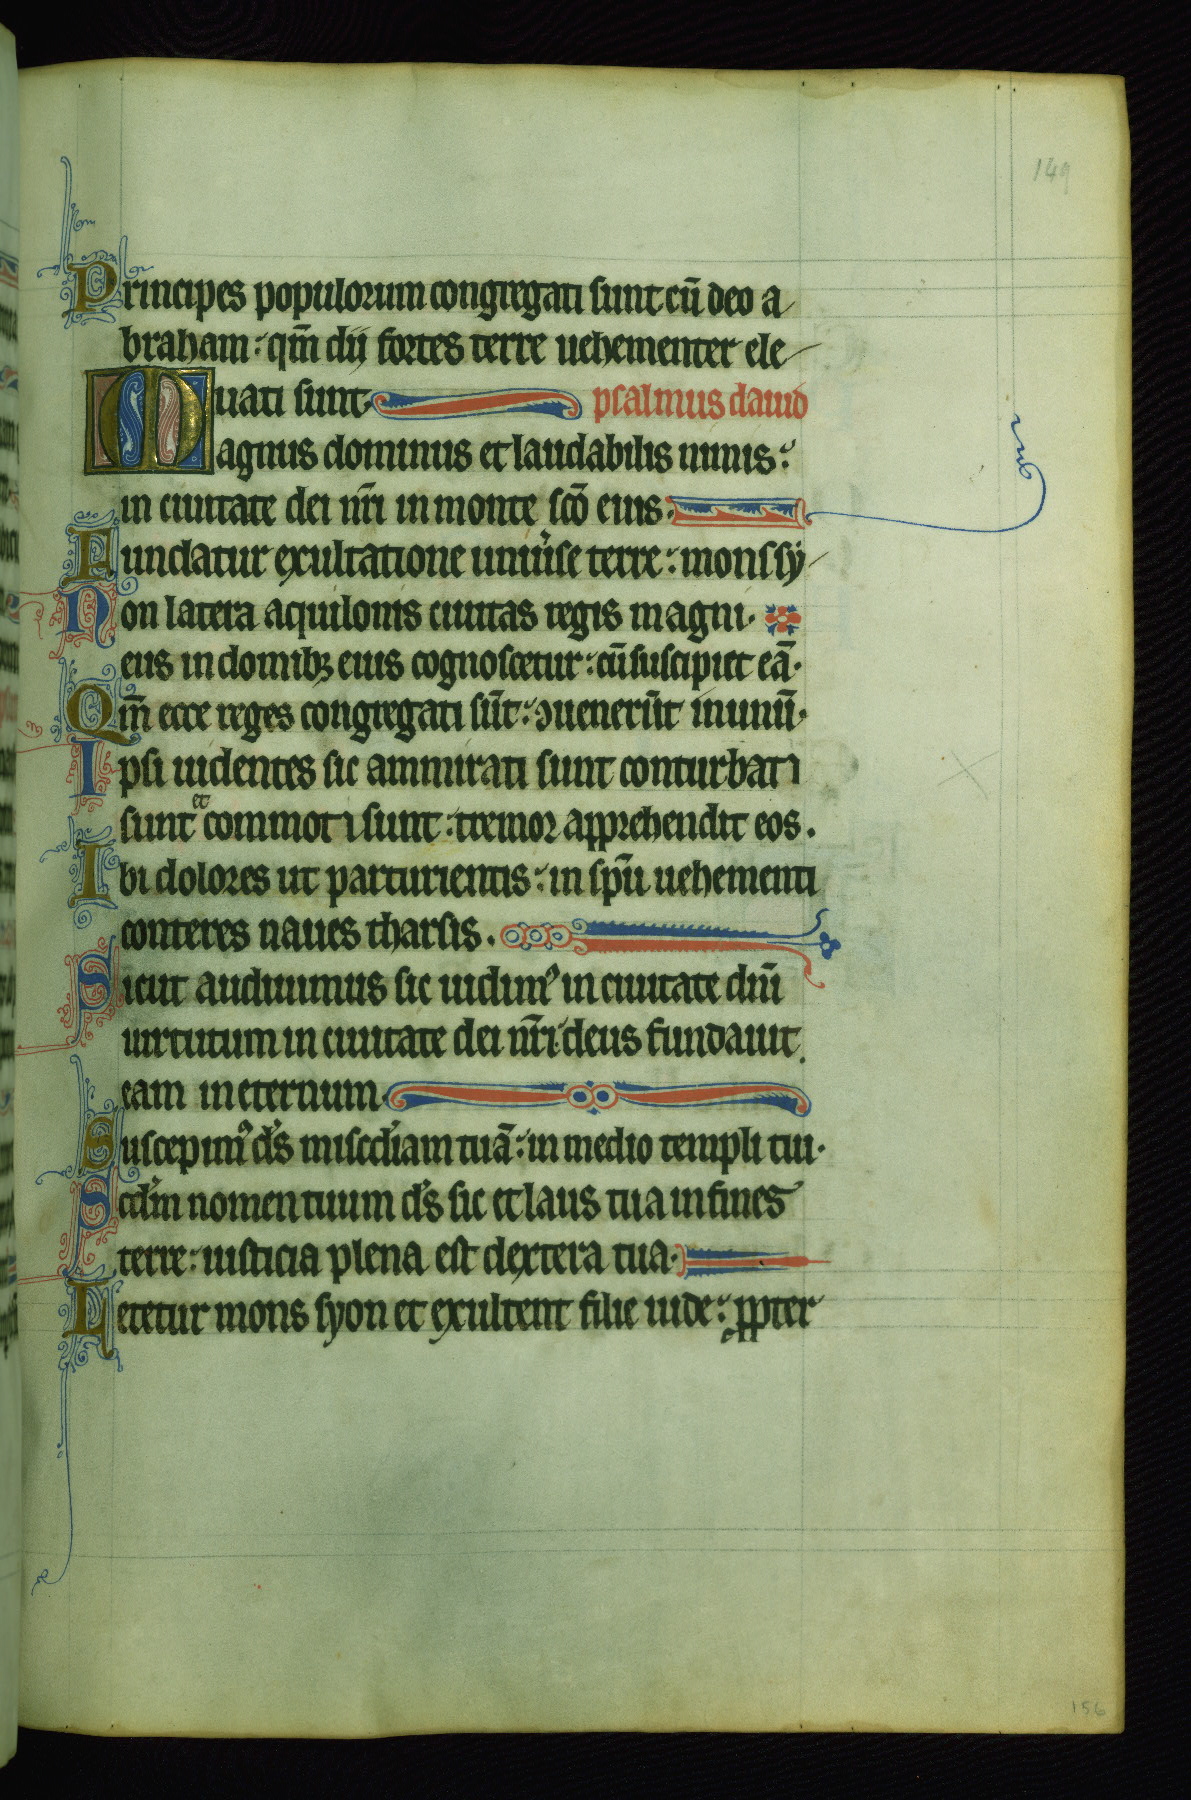 149
Principes populorum congregati sunt cū deo a
braham : qm̄ dij fortes terre uehementer ele
uati sunt. psalmus dauid
Magnus dominus et laudabilis nimis :
in ciuitate dei nr̄i in monte scō eius.
Fundatur exultatione uniuͥse terre : mons sy
on latera aquilonis ciuitas regis magni.
Deus in domibꝫ eius cognoscetur : cū suscipiet eā.
Qm̄ ecce reges congregati sūt : ꝯuenerūt inunū.
Ipsi uidentes sic ammirati sunt conturbati
sunt et commoti sunt : tremor apprehendit eos.
Ibi dolores ut parturientis : in sp̄u uehementi
conteres naues tharsis.
Sicut audiuimus sic uidimꝰ in ciuitate dn̄i
uirtutum in ciuitate dei nr̄i : deus fundauit
eam in eternum.
Suscepimꝰ d̄s mis̄cdiam tuā : in medio templi tui.
Scd̄m nomen tuum d̄s sic et laus tua in fines
terre : iusticia plena est dextera tua.
Letetur mons syon et exultent filie iude : ꝓpter
156